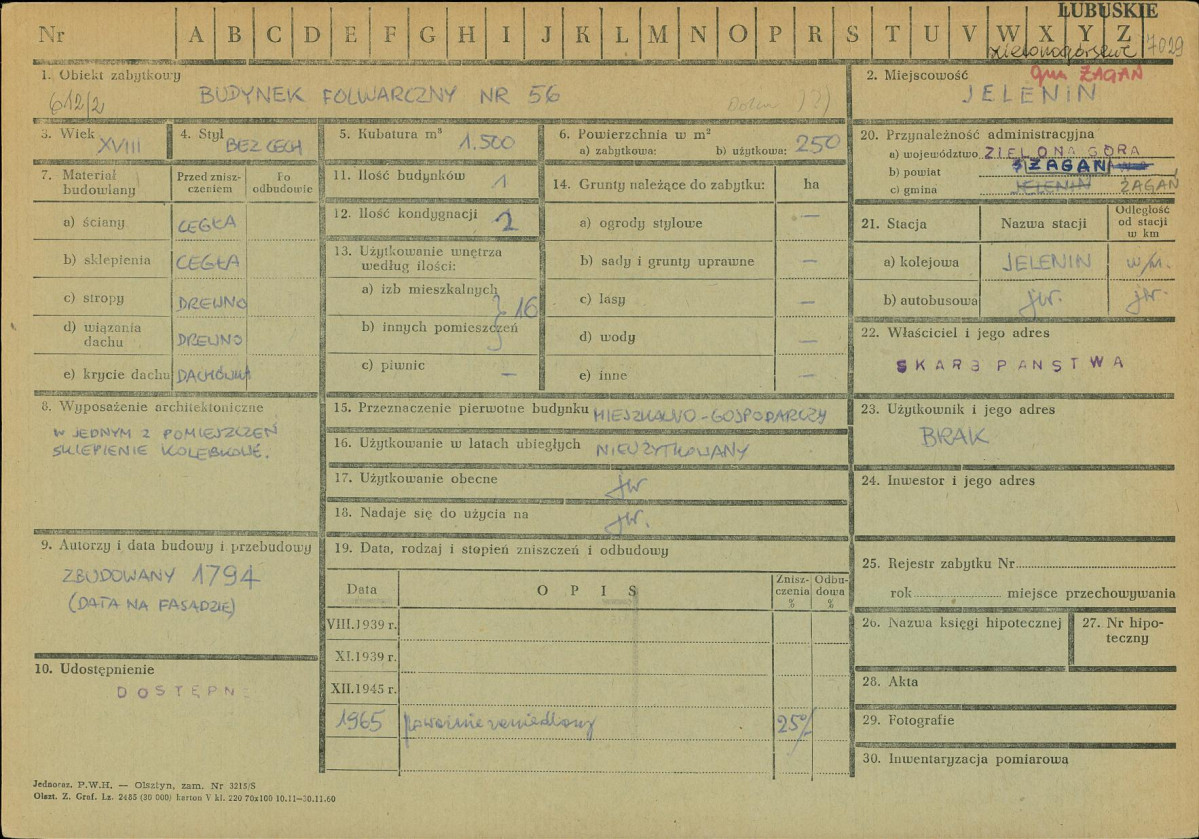 LUBUSKIE
Nr A B C D E F G H I J K L M N O P R S T U V W X Y Z
7029
1. Obiekt zabytkowy
612/2
BUDYNEK FOLWARCZNY NR 56
2. Miejscowość
gm ŻAGAŃ
JELENIN
3. Wiek
XVIII
4. Styl
BEZ CECH
5. Kubatura m³
1.500
6. Powierzchnia w m²
a) zabytkowa: b) użytkowa: 250
20. Przynależność administracyjna
a) województwo ZIELONA GÓRA
b) powiat ŻAGAŃ
c) gmina JELENIN ŻAGAŃ
7. Materiał budowlany
Przed zniszczeniem
Po odbudowie
a) ściany CEGŁA
b) sklepienia CEGŁA
c) stropy DREWNO
d) wiązania dachu DREWNO
e) krycie dachu DACHÓWKA
11. Ilość budynków 1
12. Ilość kondygnacji 2
13. Użytkowanie wnętrza według ilości:
a) izb mieszkalnych
b) innych pomieszczeń
} 16
c) piwnic —
14. Grunty należące do zabytku: ha
a) ogrody stylowe —
b) sady i grunty uprawne —
c) lasy —
d) wody —
e) inne —
21. Stacja Nazwa stacji Odległość od stacji w km
a) kolejowa JELENIN w/m.
b) autobusowa jw. jw.
22. Właściciel i jego adres
SKARB PAŃSTWA
8. Wyposażenie architektoniczne
W JEDNYM Z POMIESZCZEŃ
SKLEPIENIE KOLEBKOWE.
15. Przeznaczenie pierwotne budynku MIESZKALNO-GOSPODARCZY
16. Użytkowanie w latach ubiegłych NIEUŻYTKOWANY
17. Użytkowanie obecne jw
18. Nadaje się do użycia na jw.
23. Użytkownik i jego adres
BRAK
24. Inwestor i jego adres
9. Autorzy i data budowy i przebudowy
ZBUDOWANY 1794
(DATA NA FASADZIE)
19. Data, rodzaj i stopień zniszczeń i odbudowy
Data OPIS Zniszczenia % Odbudowa %
VIII.1939 r.
XI.1939 r.
XII.1945 r.
1965 poważnie zaniedbany 25%
25. Rejestr zabytku Nr
rok miejsce przechowywania
26. Nazwa księgi hipotecznej
27. Nr hipoteczny
10. Udostępnienie
DOSTĘPN
28. Akta
29. Fotografie
30. Inwentaryzacja pomiarowa
Jednoraz. P.W.H. — Olsztyn, zam. Nr 3215/S
Olszt. Z. Graf. Lz. 2485 (30 000) karton V kl. 220 70x100 10.11—30.11.60